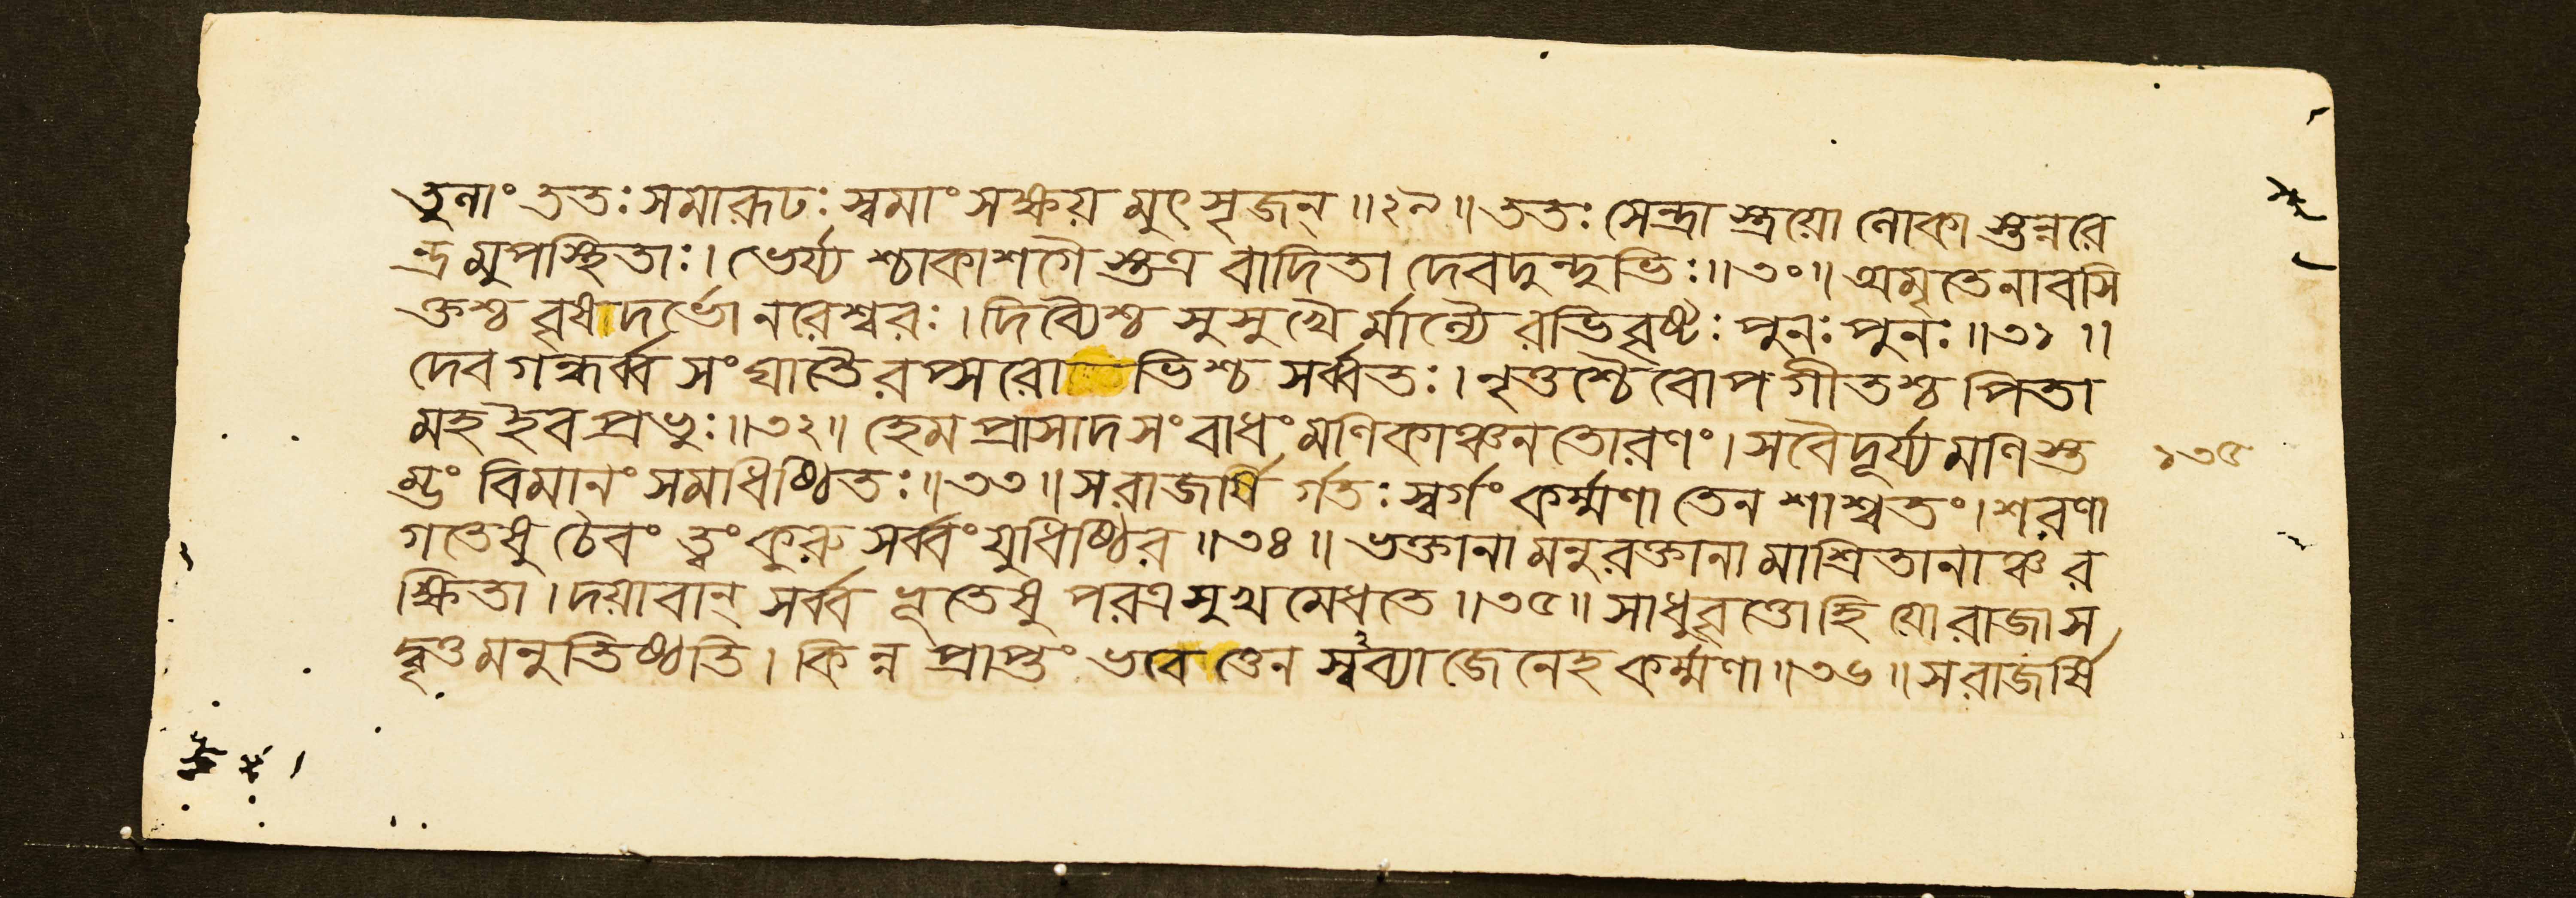 তুনাং ততঃ সমারূঢঃ স্বমাংসক্ষয়মুৎসৃজন্ ॥২৯॥ ততঃ সেন্দ্রাস্ত্রয়ো লোকাস্তন্নরে
ন্দ্রমুপস্থিতাঃ। ভের্য্যশ্চাকাশগৈস্তত্র বাদিতা দেবদুন্দুভিঃ॥৩০॥ অমৃতেনাবসি
ক্তশ্চ বৃষাদর্ভো নরেশ্বরঃ। দিব্যৈশ্চ সুসুখৈর্মাল্যৈরভিবৃষ্টঃ পুনঃ পুনঃ॥৩১॥
দেবগন্ধর্ব্বসংঘাতৈরপ্সরোভিশ্চ সর্ব্বতঃ। নৃত্তশ্চৈবোপগীতশ্চ পিতা
মহ ইব প্রভুঃ॥৩২॥ হেমপ্রাসাদসংবাধং মণিকাঞ্চনতোরণং। সবৈদূর্য্যমণিস্ত
ম্ভং বিমানং সমাধিষ্ঠিতঃ॥৩৩॥ স রাজর্ষির্গতঃ স্বর্গং কর্ম্মণা তেন শাশ্বতং। শরণা
গতেষু চৈবং ত্বং কুরু সর্ব্বং যুধিষ্ঠির॥৩৪॥ ভক্তানামনুরক্তানামাশ্রিতানাঞ্চ র
ক্ষিতা। দয়াবান্ সর্ব্বভূতেষু পরত্র সুখমেধতে॥৩৫॥ সাধুবৃত্তো হি যো রাজা স
দ্বৃত্তমনুতিষ্ঠতি। কিন্ন প্রাপ্তং ভবেত্তেন স্বব্যাজেনেহ কর্ম্মণা॥৩৬॥ স রাজর্ষি
১৩৫